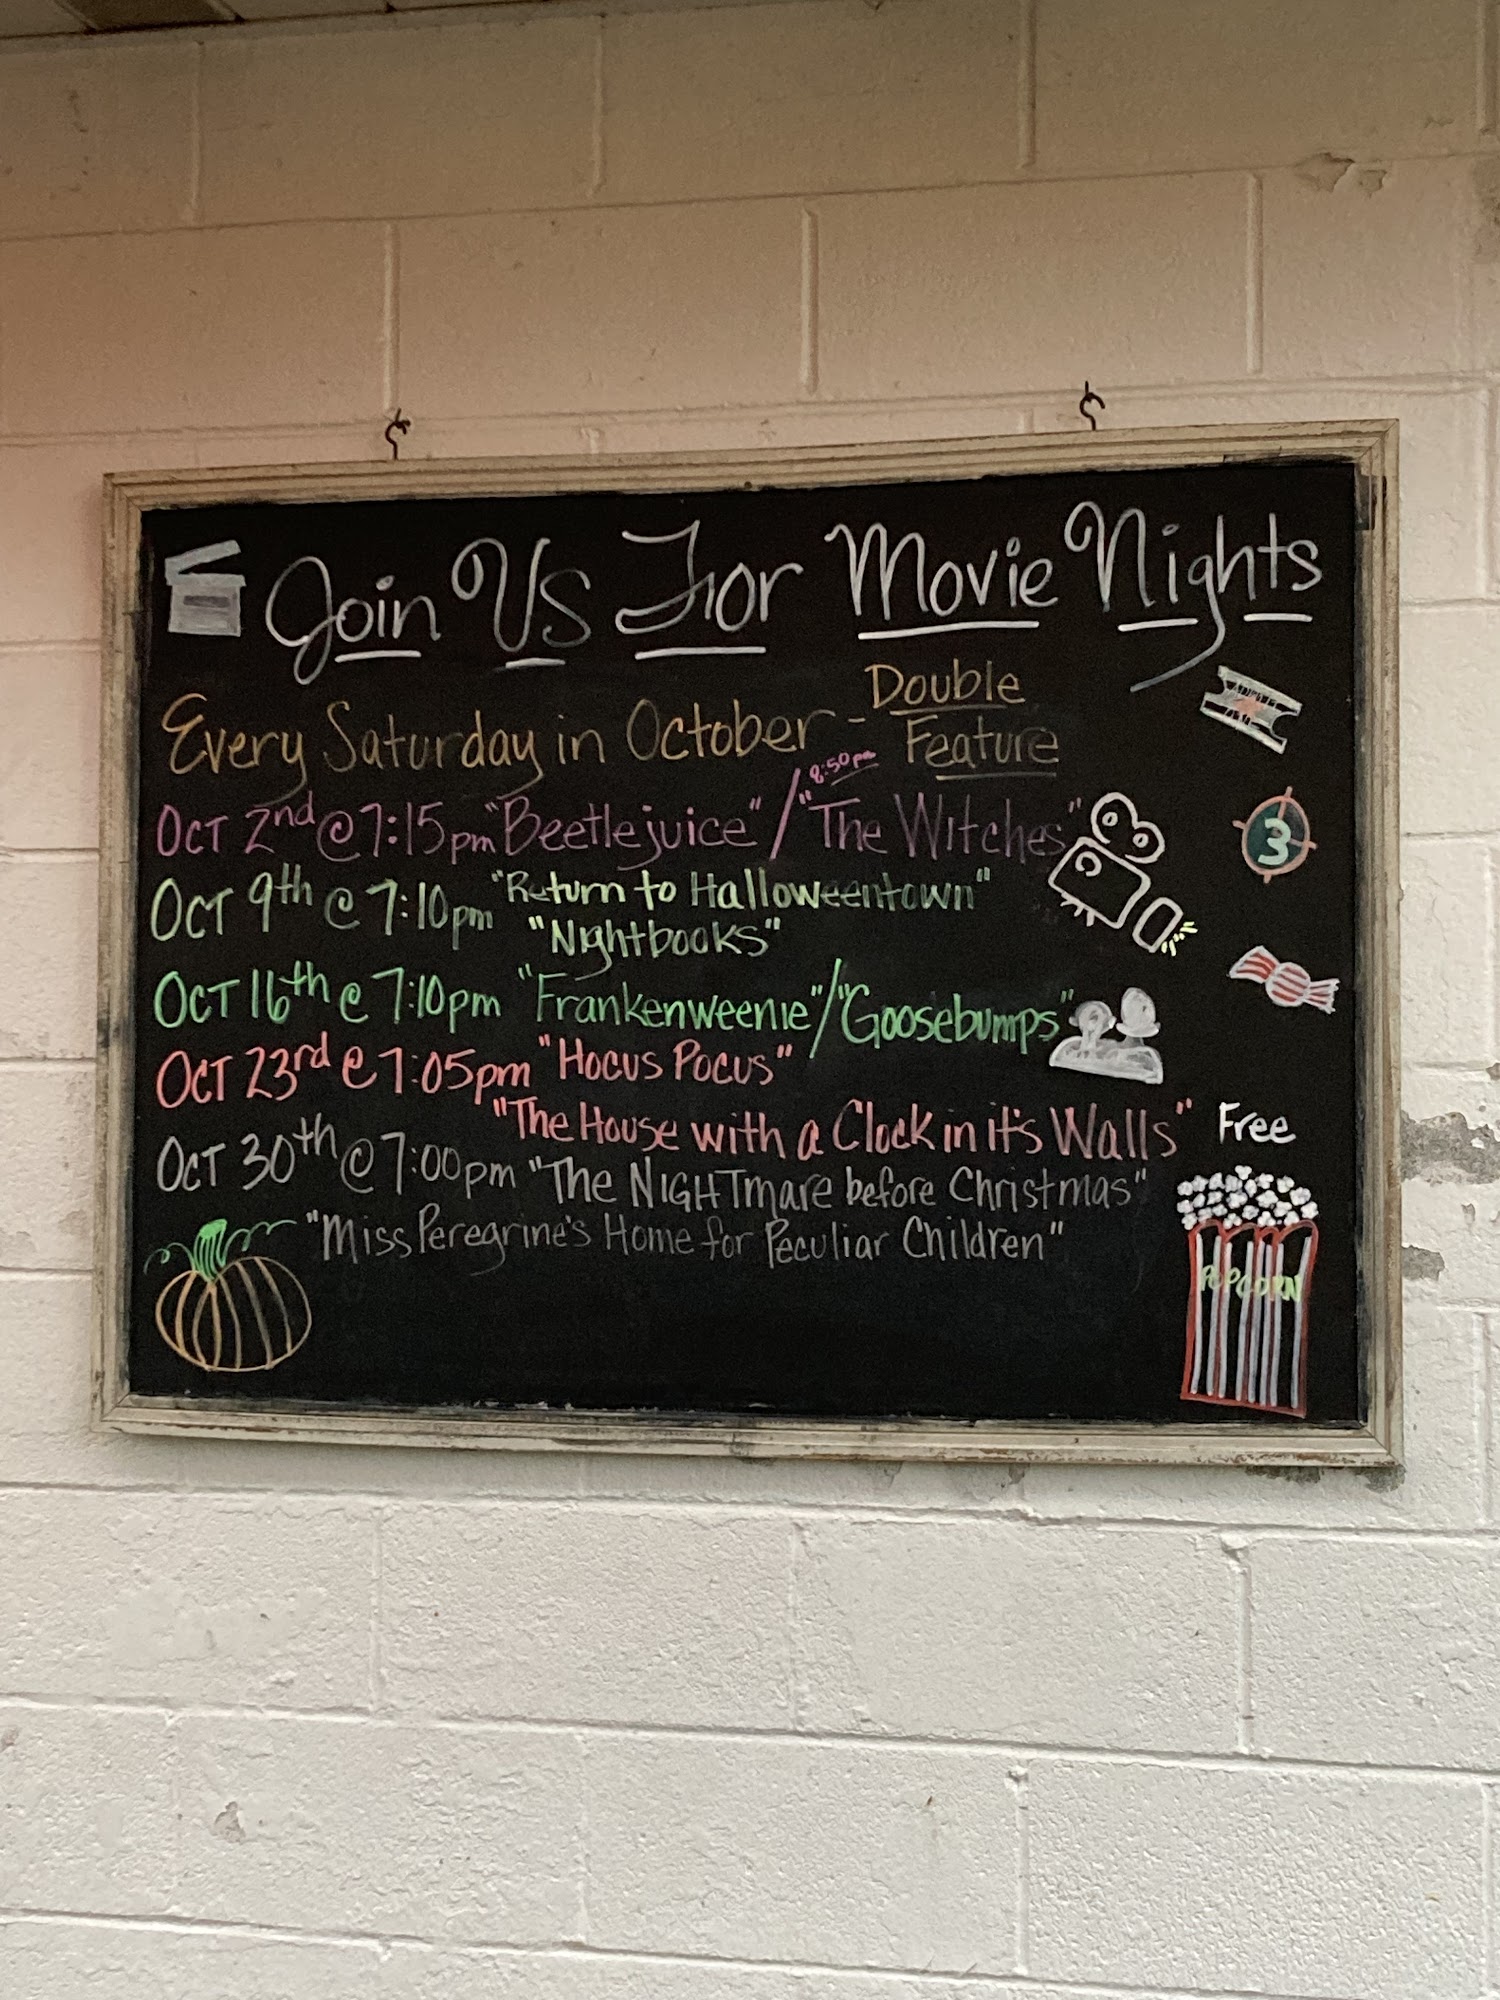 Join Us For Movie Nights
Every Saturday in October - Double Feature
Oct 2nd @ 7:15pm "Beetlejuice" / "The Witches" 8:50pm
Oct 9th @ 7:10pm "Return to Halloweentown"
"Nightbooks"
Oct 16th @ 7:10pm "Frankenweenie"/"Goosebumps"
Oct 23rd @ 7:05pm "Hocus Pocus"
"The House with a Clock in it's Walls"
Oct 30th @ 7:00pm "The NIGHTmare before Christmas"
"Miss Peregrine's Home for Peculiar Children"
3
Free
POPCORN